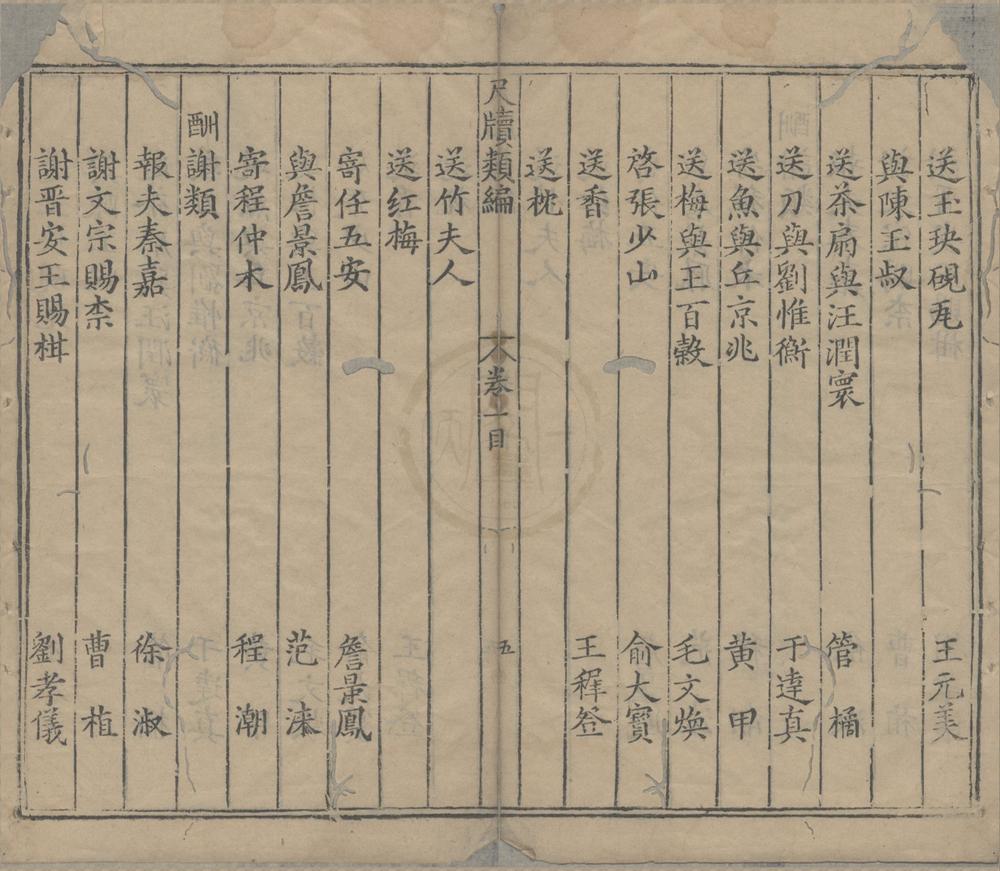 送玉玦硯瓦 王元美
與陳玉叔
送茶扇與汪潤寰 管橘
送刀與劉惟衡 于達真
送魚與丘京兆 黄甲
送梅與王百穀 毛文煥
啓張少山 俞大寳
送香 王穉登
送枕
尺牘類編 卷一目 五
送竹夫人
送红梅
寄任五安 詹景鳳
與詹景鳳 范淶
寄程仲木 程潮
酬謝類
報夫秦嘉 徐淑
謝文宗賜柰 曹植
謝晋安王賜柑 劉孝儀